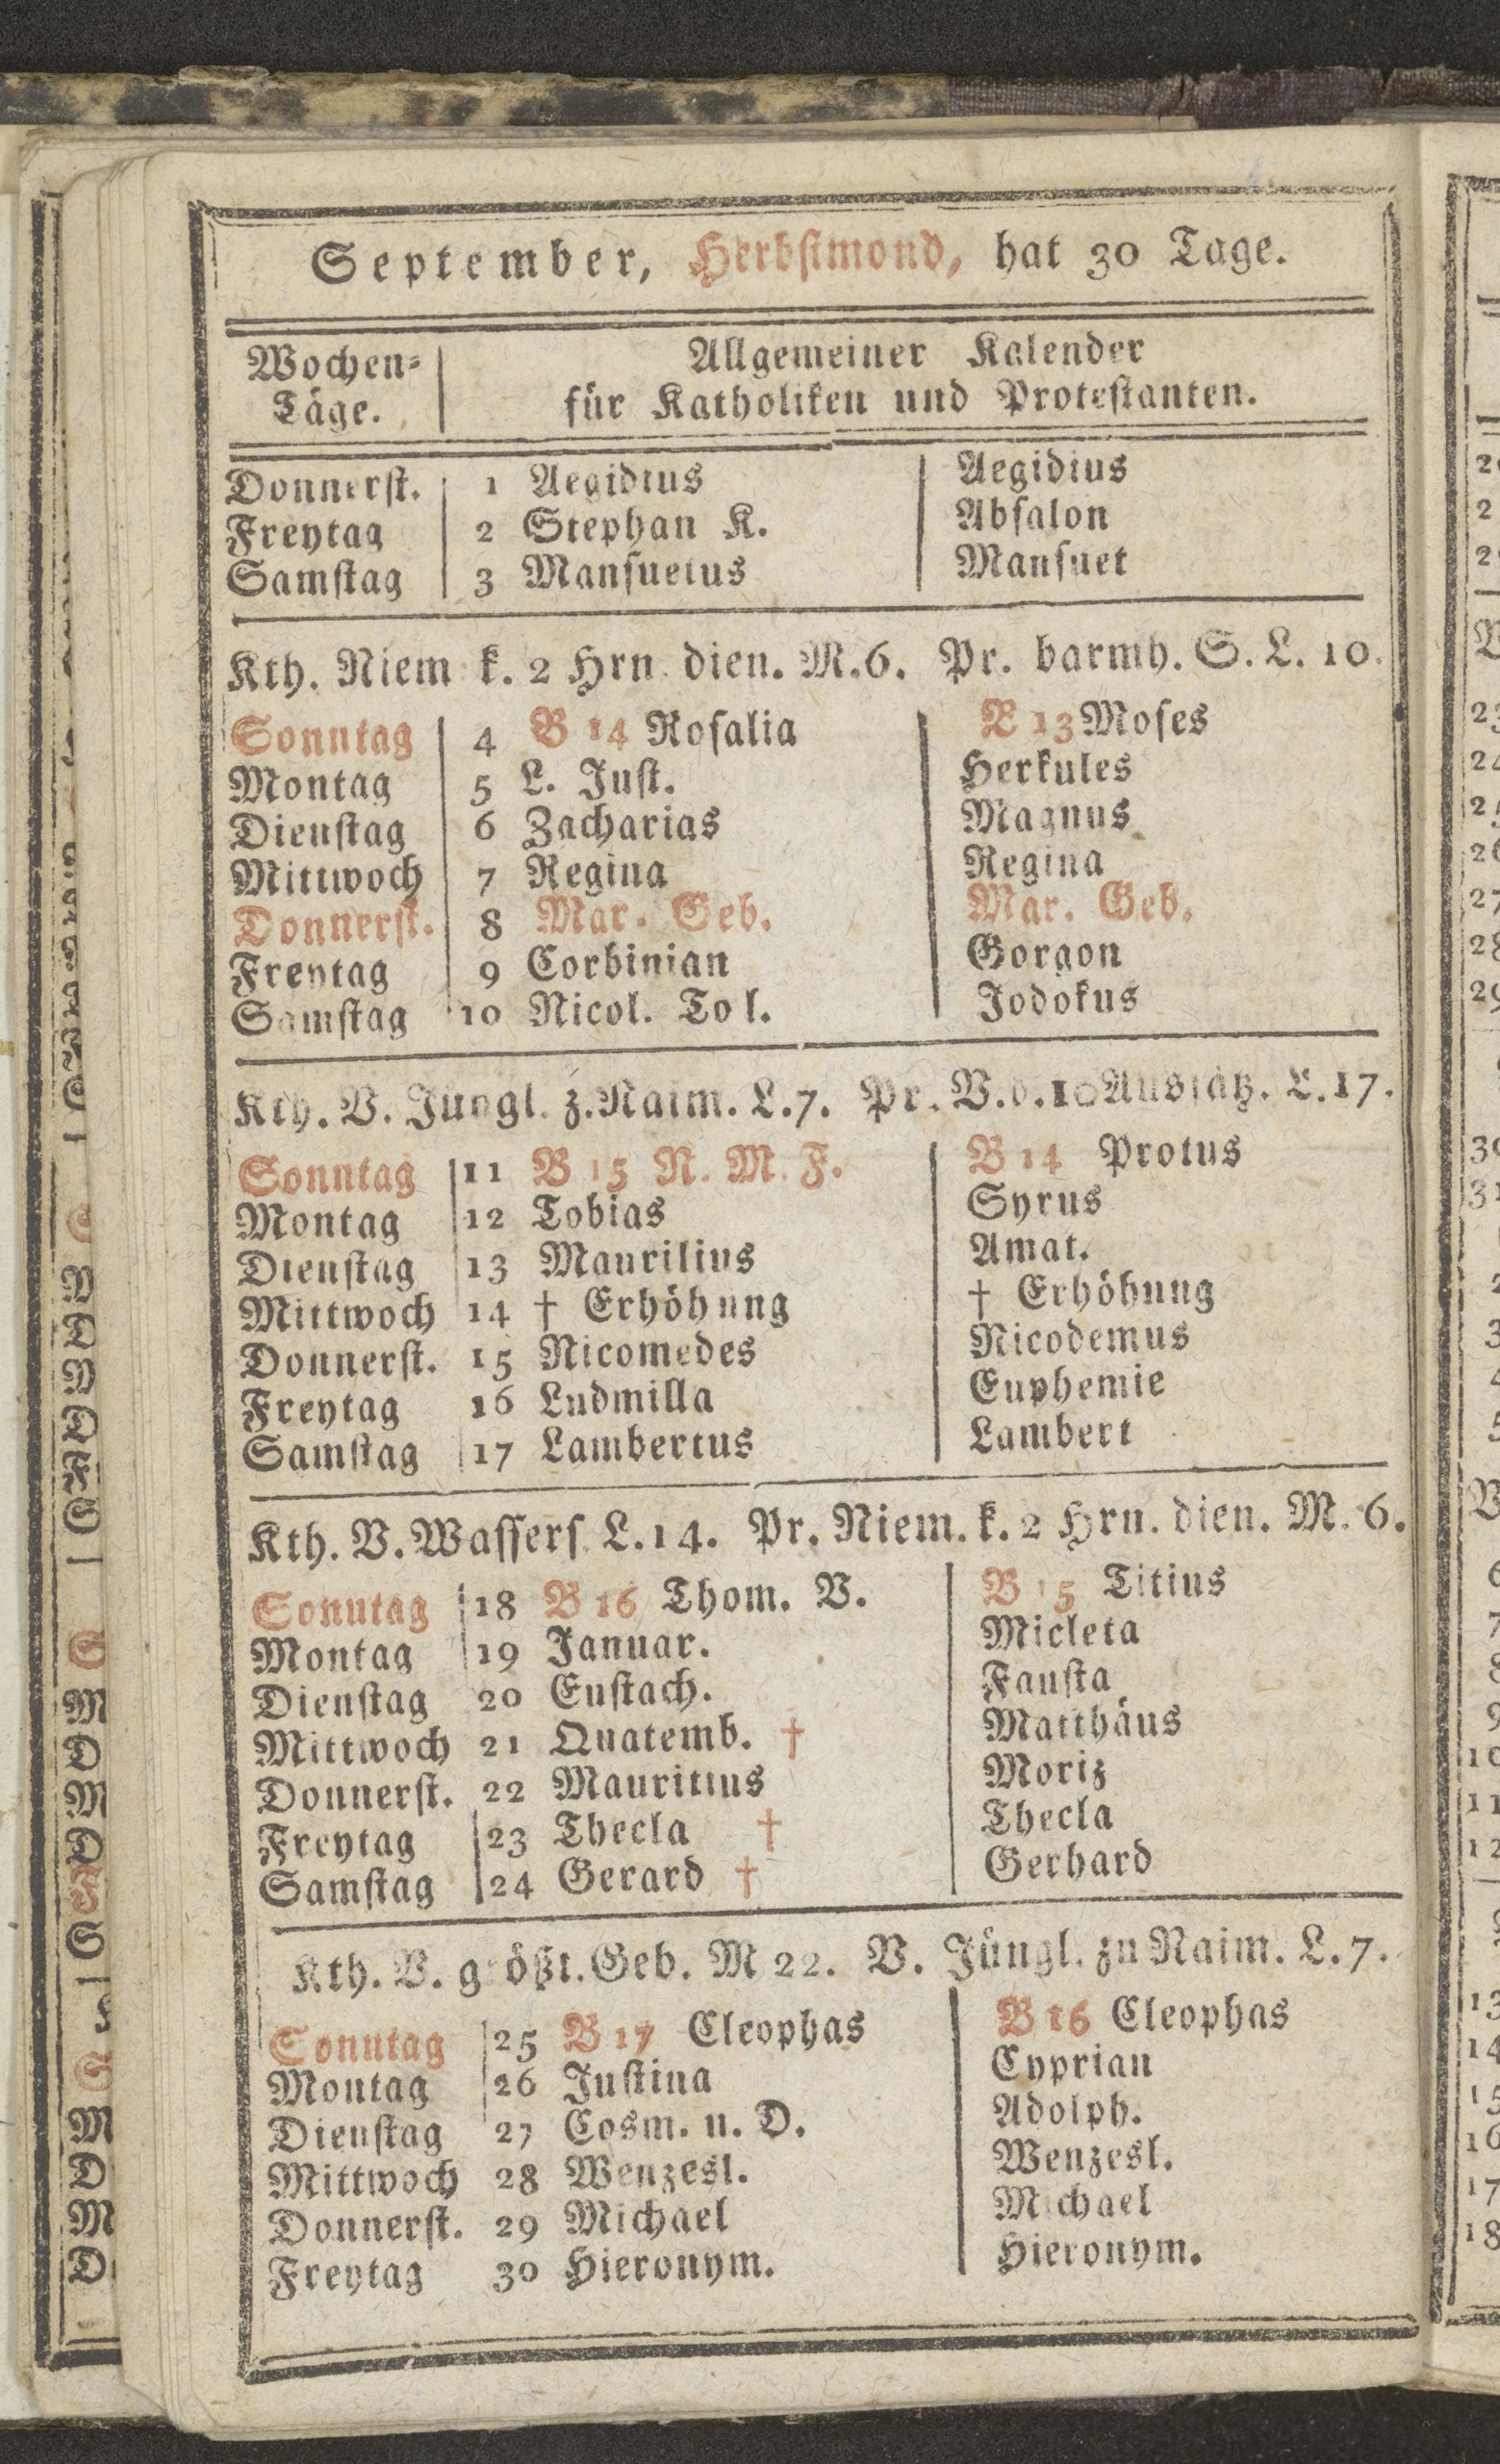 September, Herbstmond, hat 30 Tage.
Wochen- Allgemeiner Kalender
Täge. für Katholiken und Protestanten.
Donnerst. 1 Aegidius Aegidius
Freytag 2 Stephan K. Absalon
Samstag 3 Mansuetus Mansuet
Kth. Niem k. 2 Hrn. dien. M.6. Pr. barmh. S. L. 10.
Sonntag 4 B 14 Rosalia B 13 Moses
Montag 5 L. Just. Herkules
Dienstag 6 Zacharias Magnus
Mittwoch 7 Regina Regina
Donnerst. 8 Mar. Geb. Mar. Geb.
Freytag 9 Corbinian Gorgon
Samstag 10 Nicol. Tol. Jodokus
Kth. V. Jüngl. z. Naim. L.7. Pr. V.d.10 Aussätz. L.17.
Sonntag 11 B 15 N. M. F. B 14 Protus
Montag 12 Tobias Syrus
Dienstag 13 Maurilius Amat.
Mittwoch 14 † Erhöhung † Erhöhung
Donnerst. 15 Nicomedes Nicodemus
Freytag 16 Ludmilla Euphemie
Samstag 17 Lambertus Lambert
Kth. V. Wassers. L.14. Pr. Niem. k. 2 Hrn. dien. M. 6.
Sonntag 18 B 16 Thom. V. B 15 Titius
Montag 19 Januar. Micleta
Dienstag 20 Eustach. Fausta
Mittwoch 21 Quatemb. † Matthäus
Donnerst. 22 Mauritius Moriz
Freytag 23 Thecla † Thecla
Samstag 24 Gerard † Gerhard
Kth. V. größt. Geb. M 22. V. Jüngl. zu Naim. L. 7.
Sonntag 25 B 17 Cleophas B 16 Cleophas
Montag 26 Justina Cyprian
Dienstag 27 Cosm. u. D. Adolph.
Mittwoch 28 Wenzesl. Wenzesl.
Donnerst. 29 Michael Michael
Freytag 30 Hieronym. Hieronym.